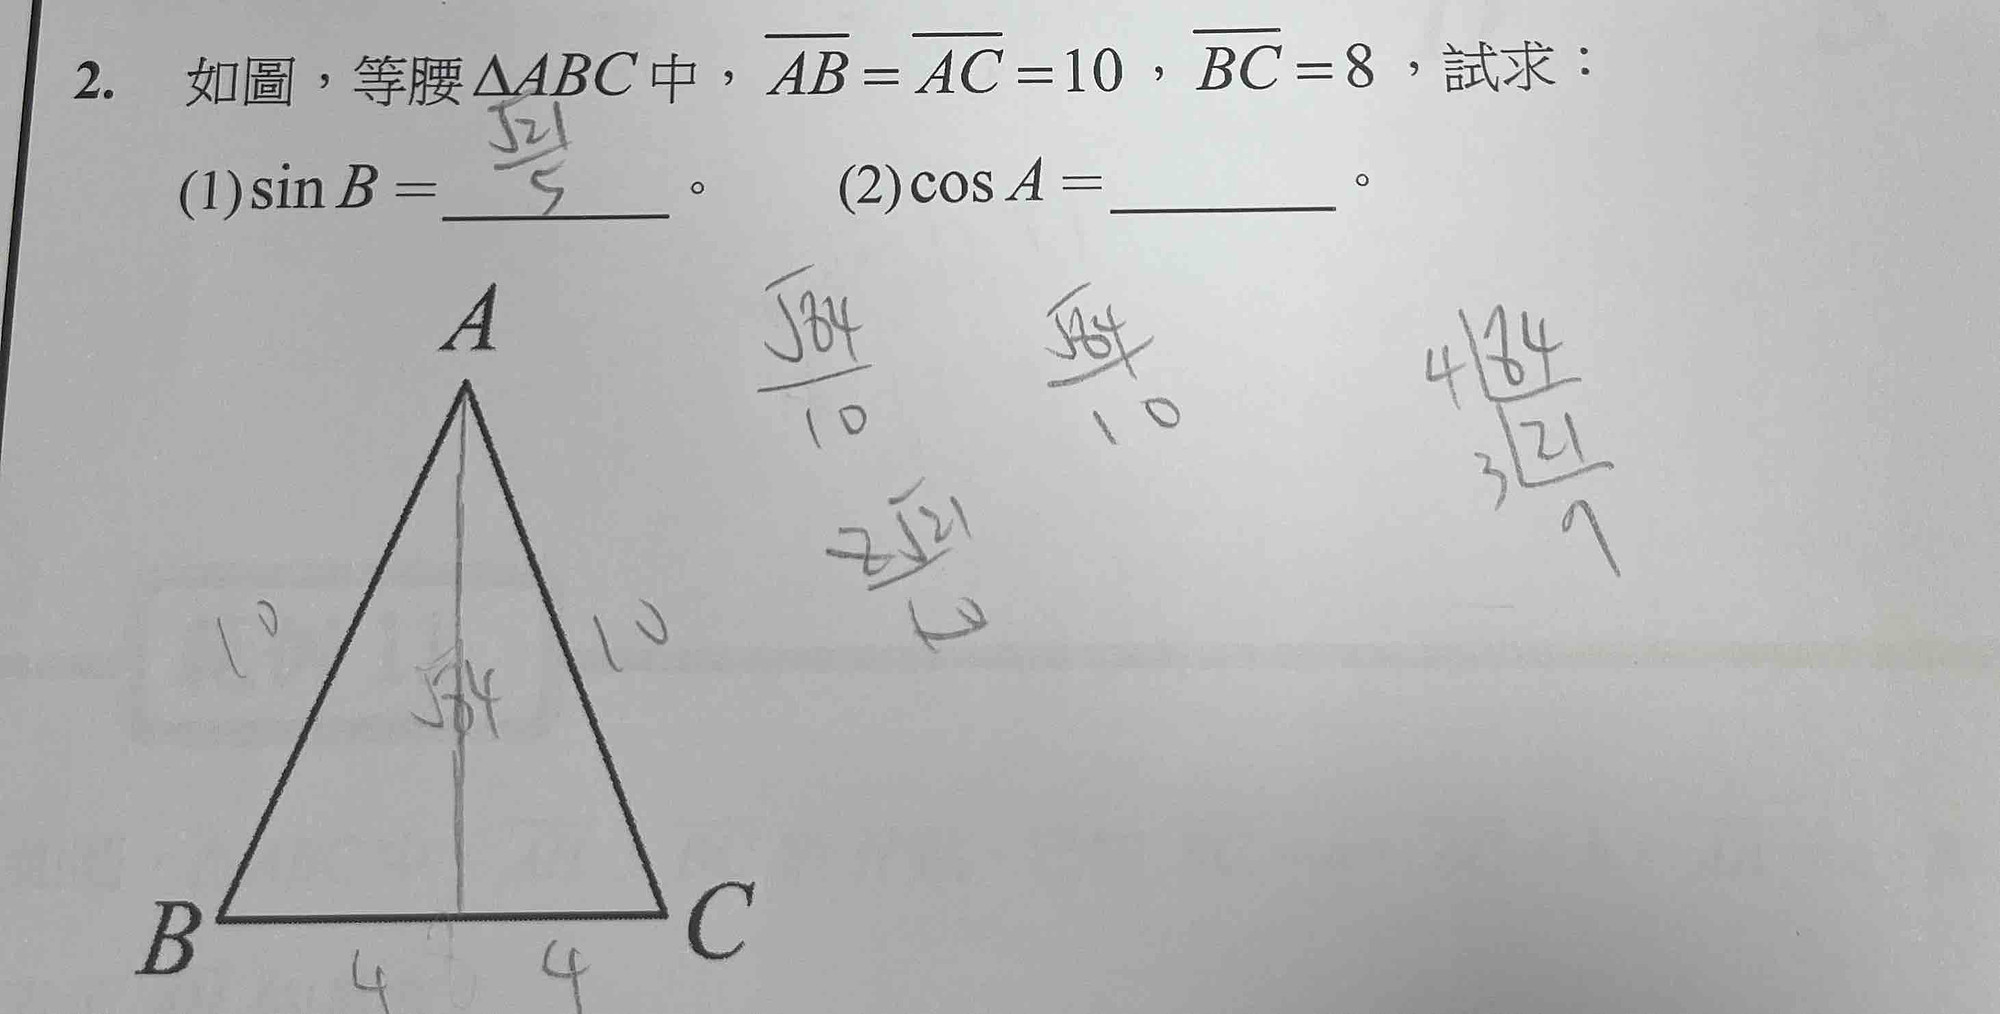 2. 如圖，等腰ΔABC中，AB=AC=10，BC=8，試求：
√21/5
(1)sin B=______。 (2)cos A=______。
A
√84/10
√84/10
4 84
3 21
7
2√21/10
10
10
√84
B
C
4
4